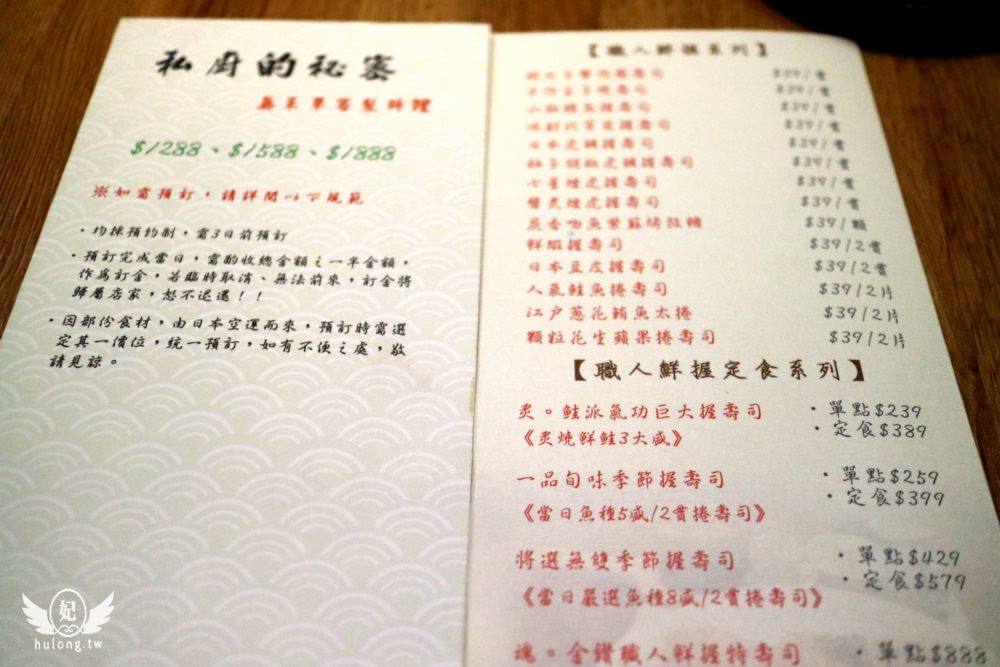 私廚的秘密
無菜單客製料理
$1288、$1588、$1888
※如需預訂，請詳閱以下規範
·均採預約制，需3日前預訂
·預訂完成當日，需酌收總金額之一半金額，
作為訂金，若臨時取消、無法前來，訂金將
歸屬店家，恕不退還！！
·因部份食材，由日本空運而來，預訂時需選
定其一價位，統一預訂，如有不便之處，敬
請見諒。
【職人鮮握系列】
$39/貫
$39/貫
$39/貫
握壽司 $39/貫
日本虎鰕握壽司 $39/貫
柚子胡椒虎鰕握壽司 $39/貫
七星煙虎握壽司 $39/貫
蟹黃煙虎握壽司 $39/貫
炭香吻魚紫蘇烤飯糰 $39/顆
鮮蝦握壽司 $39/2貫
日本豆皮握壽司 $39/2貫
人氣鮭魚捲壽司 $39/2片
江戶蔥花鮪魚太捲 $39/2片
顆粒花生蘋果捲壽司 $39/2片
【職人鮮握定食系列】
炙。鮭派氣功巨大握壽司 ·單點$239
《炙燒鮮鮭3大盛》 ·定食$389
一品旬味季節握壽司 ·單點$259
《當日魚種5盛/2貫捲壽司》 ·定食$399
將選無雙季節握壽司 ·單點$429
《當日嚴選魚種8盛/2貫捲壽司》 ·定食$579
魂。金鑽職人鮮握特壽司 ·單點$888
妃
hulong.tw